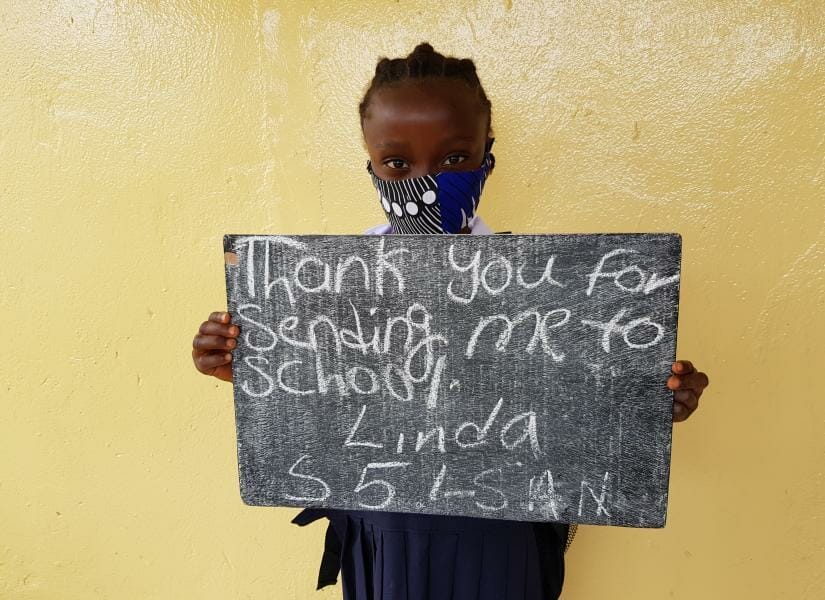 Thank you for
Sending me to
School.
Linda
S5L-SAN